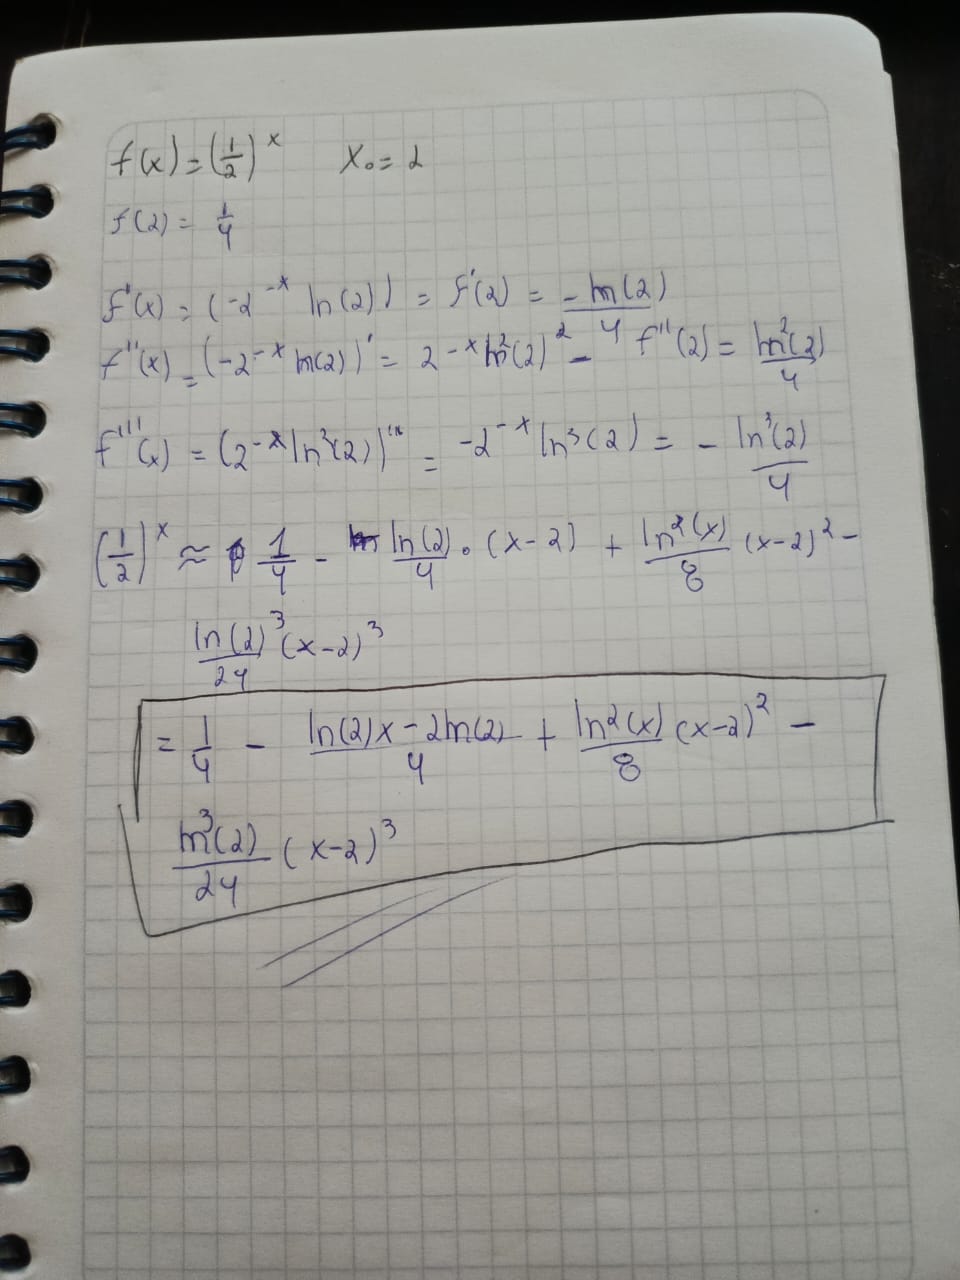 f(x) = (1/2)^x   x₀ = 2
f(2) = 1/4
f'(x) = (-2^-x ln(2)) = f'(2) = - ln(2)/4
f''(x) = (-2^-x ln(2))' = 2^-x ln²(2)² - f''(2) = ln²(2)/4
f'''(x) = (2^-x ln²(2))''' = -2^-x ln³(2) = - ln³(2)/4
(1/2)^x ≈ 1/4 - ln(2)/4 · (x-2) + ln²(x)/8 (x-2)² -
ln(2)³/24 (x-2)³
= 1/4 - ln(2)x-2ln(2)/4 + ln²(x)/8 (x-2)² -
ln³(2)/24 (x-2)³